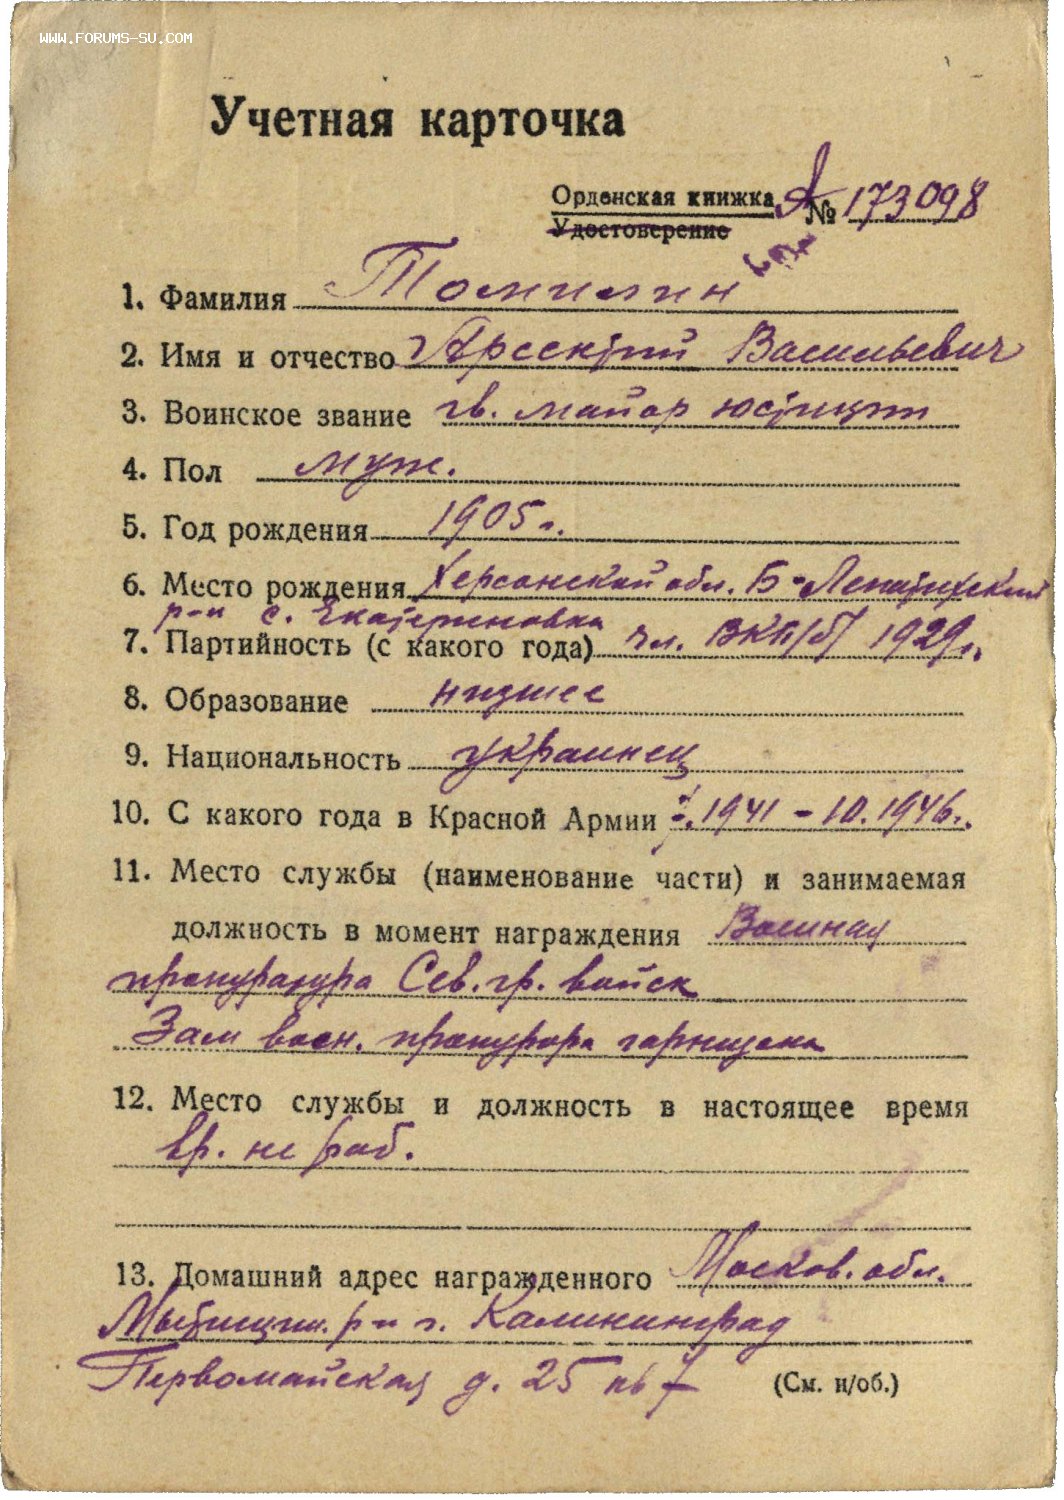 WWW.FORUMS-SU.COM
Учетная карточка
Орденская книжка А № 173098
Удостоверение
1. Фамилия Томилин
2. Имя и отчество Арсений Васильевич
3. Воинское звание гв. майор юстиции
4. Пол муж.
5. Год рождения 1905 г.
6. Место рождения Херсонской обл. Б-Лепатихский
р-н с. Екатериновка
7. Партийность (с какого года) чл. ВКП/б/ 1929 г.
8. Образование низшее
9. Национальность украинец
10. С какого года в Красной Армии 1941 - 10.1946 г.
11. Место службы (наименование части) и занимаемая
должность в момент награждения Военная
прокуратура Сев. гр. войск
Зам воен. прокурора гарнизона
12. Место службы и должность в настоящее время
вр. не раб.
13. Домашний адрес награжденного Москов. обл.
Мытищин. р-н г. Калининград
Первомайская д. 25 кв 7
(См. н/об.)